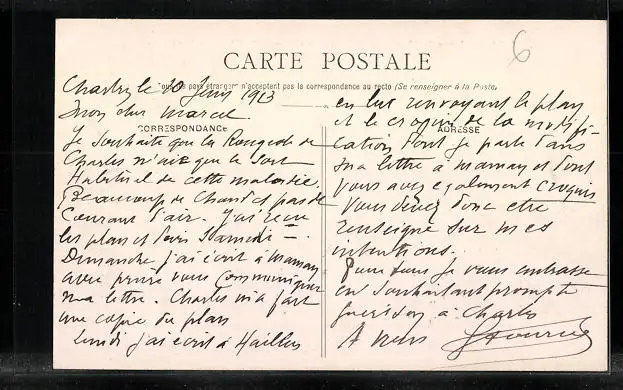 6
CARTE POSTALE
Tous les pays étrangers n'acceptent pas la correspondance au recto (Se renseigner à la Poste)
CORRESPONDANCE
ADRESSE
le 20 Juin 1913
Mon cher Marcel
Je souhaite que la Rougeole de
Charles n'aie que le sort
Habituel de cette maladie.
Beaucoup de Chaud et pas de
Courant d'air. J'ai reçu
les plans et devis Samedi
Dimanche j'ai écrit à Maman
avec prière vous communiquer
ma lettre. Charles m'a fait
une copie du plan
Lundi j'ai écrit à
en lui renvoyant le plan
et le croquis de la modifi-
cation dont je parle dans
ma lettre à maman et dont
vous avez également croquis
vous devez donc etre
renseigné sur mes
intentions.
je vous embrasse
en souhaitant prompte
guérison à Charles
A vous